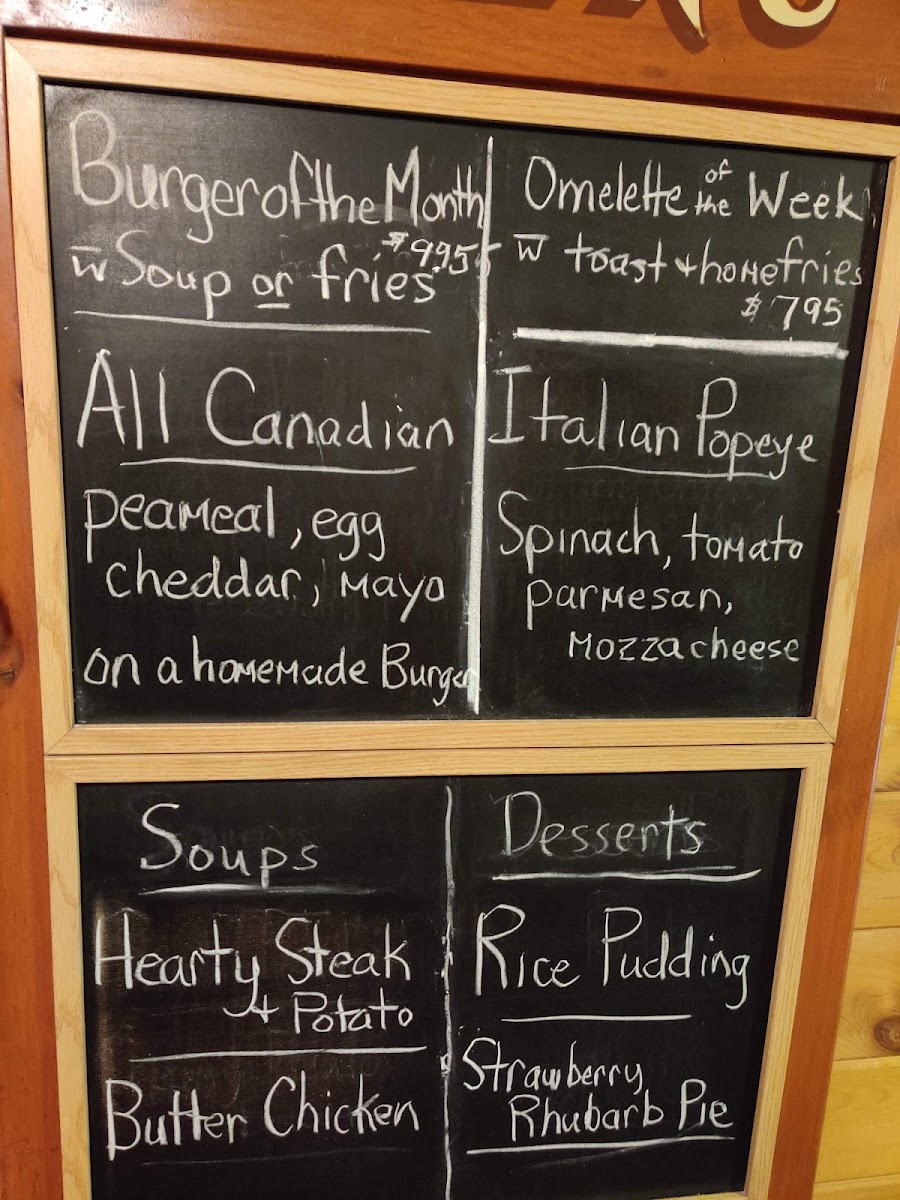 Burger of the Month
w Soup or fries $9.95
All Canadian
peameal, egg
cheddar, mayo
on a homemade Burger
Omelette of the Week
w toast + homefries
$7.95
Italian Popeye
Spinach, tomato
parmesan,
mozza cheese
Soups
Hearty Steak
+ Potato
Butter Chicken
Desserts
Rice Pudding
Strawberry
Rhubarb Pie